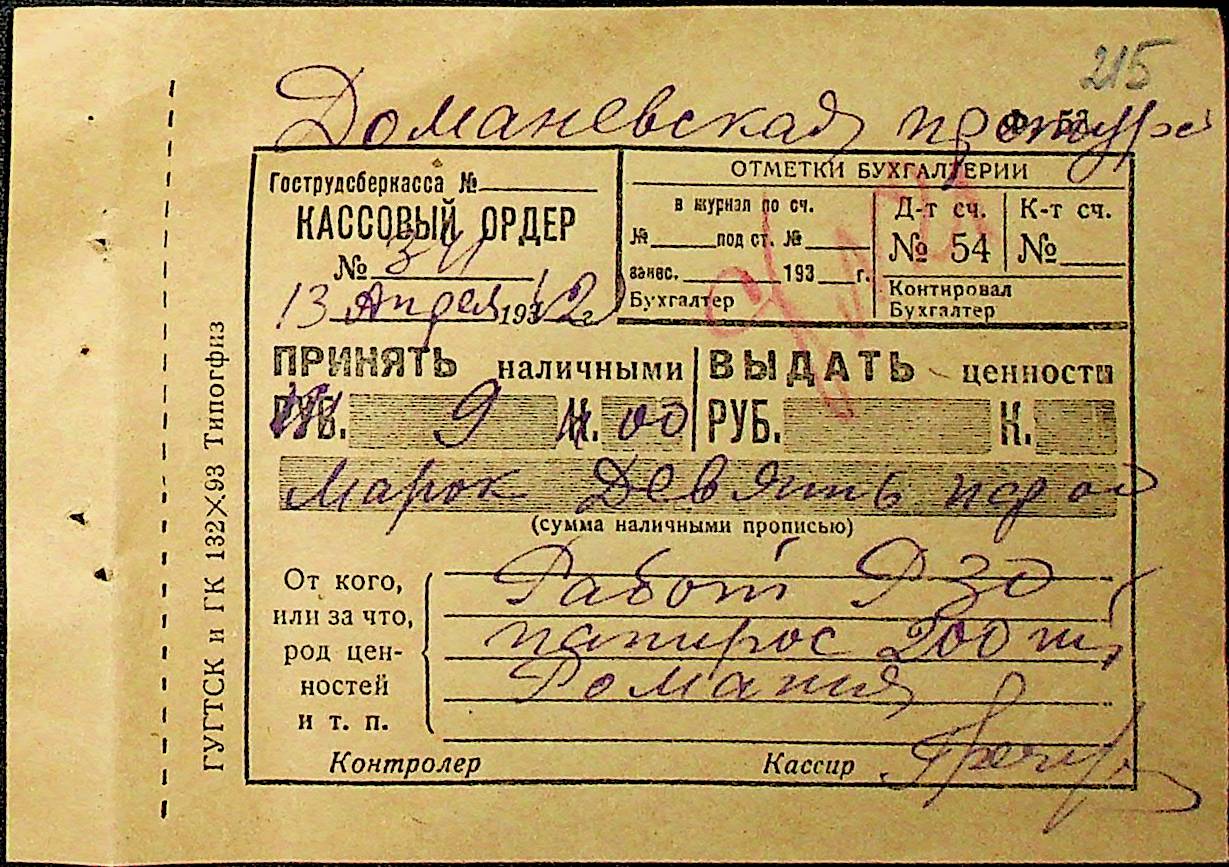 215
Доманевская претура
Ф. 52
Гострудсберкасса №
КАССОВЫЙ ОРДЕР
№ 34
13 Апреля 1942 г.
ОТМЕТКИ БУХГАЛТЕРИИ
в журнал по сч.
№ под ст. №
занес. 193 г.
Бухгалтер
Д-т сч.
№ 54
Контировал
Бухгалтер
К-т сч.
№
ПРИНЯТЬ наличными
РУБ. 9 К. 00
ВЫДАТЬ ценности
РУБ. К.
Марок Девять
(сумма наличными прописью)
От кого,
или за что,
род цен-
ностей
и т. п.
Работ РЗО
папирос 200 шт,
Контролер
Кассир
ГУГТСК и ГК 132×93 Типогфиз